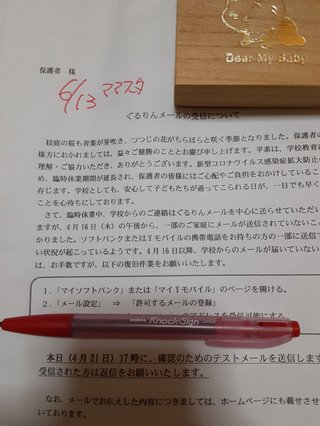 Dear My Baby
保護者 様
6/13 ママスタ
ぐるりんメールの受信について
校庭の桜も青葉が芽吹き、つつじの花がちらほらと咲く季節となりました。保護者の
様方におかれましては、益々ご健勝のこととお慶び申し上げます。平素は、学校教育
理解・ご協力いただき、ありがとうございます。新型コロナウイルス感染症拡大防止
め、臨時休業期間が延長され、保護者の皆様にはご心配やご負担をおかけしている
存じます。学校としても、安心して子どもたちが通ってこられる日が、一日でも早く
ことを心待ちにしております。
さて、臨時休業中、学校からのご連絡はぐるりんメールを中心に送らせていただい
ますが、4月16日（木）の午後から、一部のご家庭にメールが送信されていないこ
かりました。ソフトバンクまたはYモバイルの携帯電話をお持ちの方の一部に送信で
い状況が起こっているようです。4月16日以降、学校からのメールが届いていない
は、お手数ですが、以下の復旧作業をお願いいたします。
1．「マイソフトバンク」または「マイYモバイル」のページを開ける。
2．「メール設定」 ⇒ 「許可するメールの登録」
のアドレスを受信可能にする
ZEBRA KnockSign JAPAN
本日（4月21日）17時に、確認のためのテストメールを送信します
受信された方は返信をお願いいたします。
なお、メールでお伝えした内容につきましては、ホームページにも載せさせ
いております。